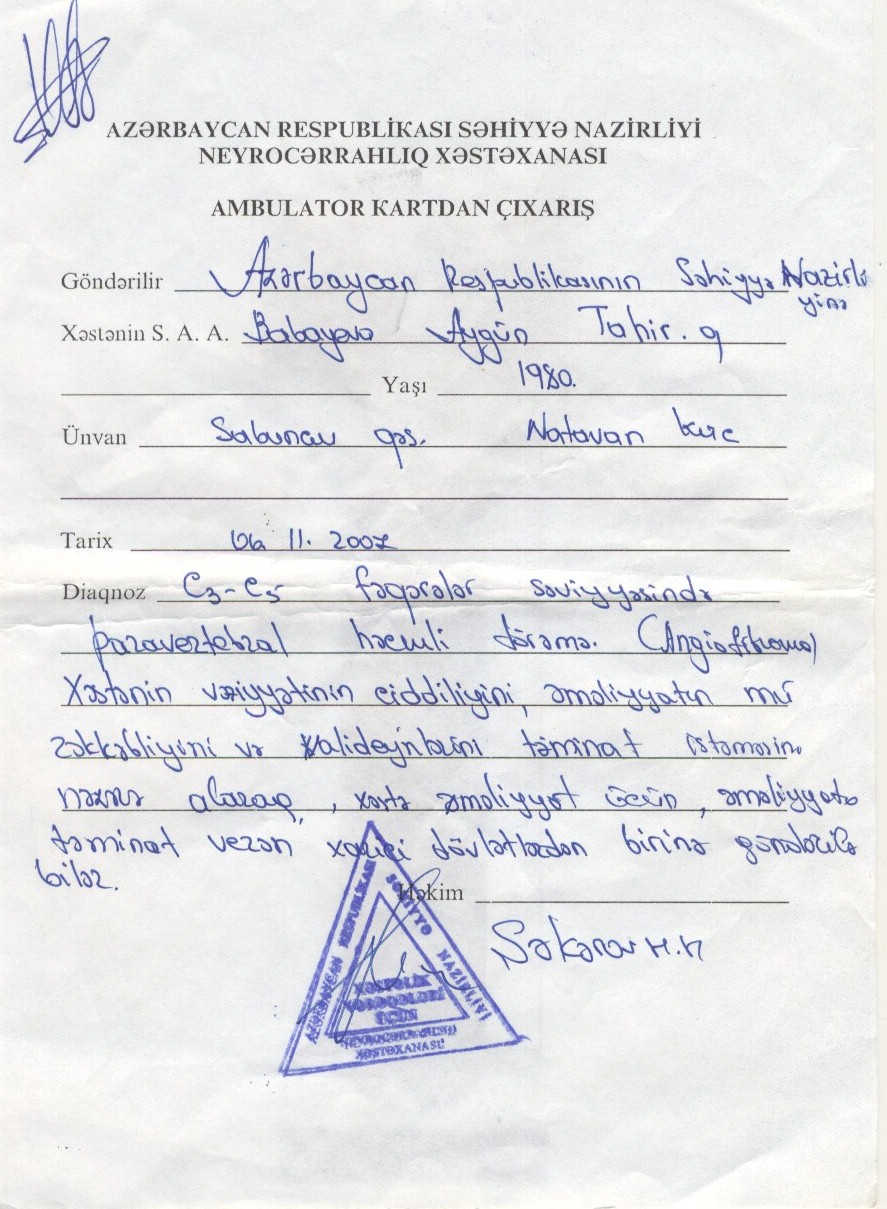 AZƏRBAYCAN RESPUBLİKASI SƏHİYYƏ NAZİRLİYİ
NEYROCƏRRAHLIQ XƏSTƏXANASI
AMBULATOR KARTDAN ÇIXARIŞ
Göndərilir Azərbaycan Respublikasının Səhiyyə Nazirli
yinə
Xəstənin S. A. A. Babayeva Aygün Tahir. q
Yaşı 1980.
Ünvan Sabuncu qəs. Natavan küç
Tarix 06 11. 2007
Diaqnoz C3-C5 fəqərələr səviyyəsində
paravertebral həcmli törəmə. (Angiofibroma)
Xəstənin vəziyyətinin ciddiliyini, əməliyyatın mü
rəkkəbliyini və valideynlərini təminat istəməsini
nəzərə alaraq, xəstə əməliyyat üçün, əməliyyata
təminat verən xarici dövlətlərdən birinə göndərilə
bilər.
Həkim
Şəkərov H.M
AZƏRBAYCAN RESPUBLİKASI SƏHİYYƏ NAZİRLİYİ
XƏSTƏLİK
VƏRƏQƏLƏRİ
ÜÇÜN
NEYROCƏRRAHLIQ
XƏSTƏXANASI